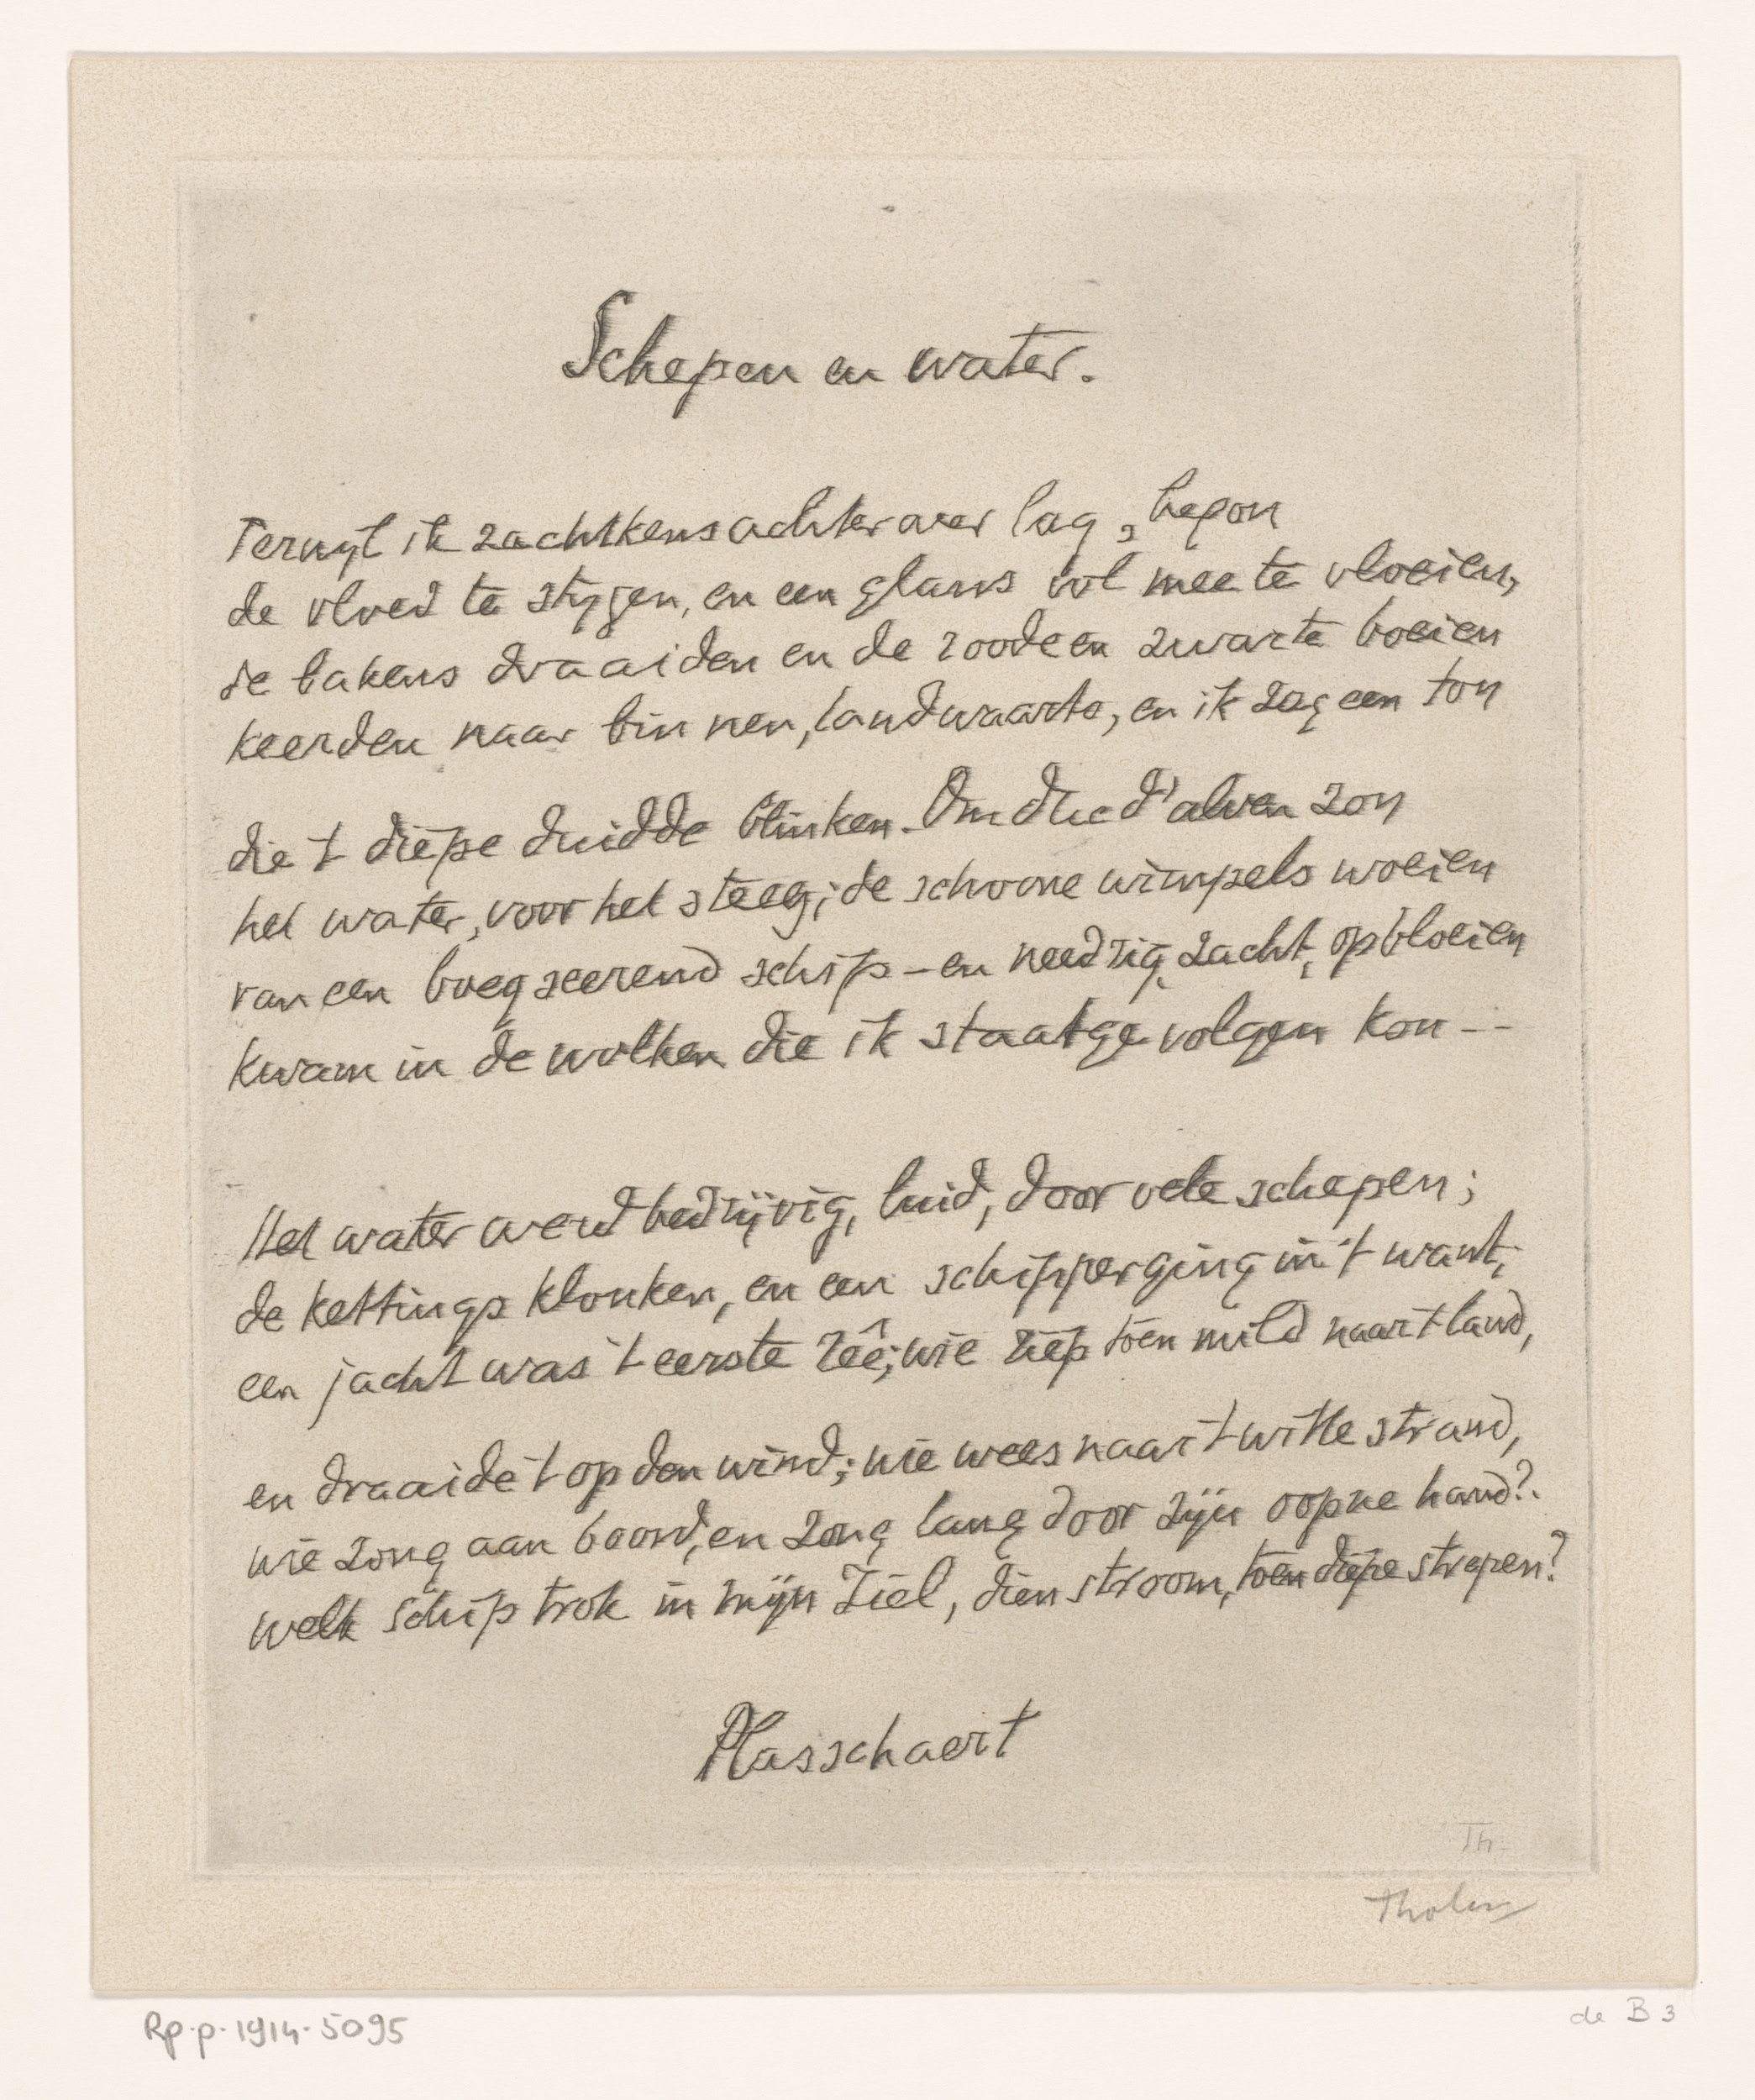 Schepen en water.
Terwyl ik zachtkens achterover lag, begon
de vloed te stygen, en een glans vol mee te vloeien,
de bakens draaiden en de roode en zwarte boeien
keerden naar binnen, landwaarts, en ik zag een ton
die 't diepe duidde blinken. Om d'alven zon
het water, voor het steeg; de schoone wimpels woeien
van een boegseerend schip – en needrig, zacht, opbloeien
kwam in de wolken die ik staatge volgen kon --
Het water werd bedrijvig, luid, door vele schepen;
de kettings klonken, en een schipper ging in 't want;
een jacht was 't eerste rêe; wie riep toen mild naar 't land,
en draaide 't op den wind; wie wees naar 't witte strand,
wie zong aan boord, en zong lang door zijn oopne hand?
welk schip trok in mijn Ziel, dien stroom, toen diepe strepen?
Plasschaert
Th.
Tholen
Rp-p-1914-5095
de B 3